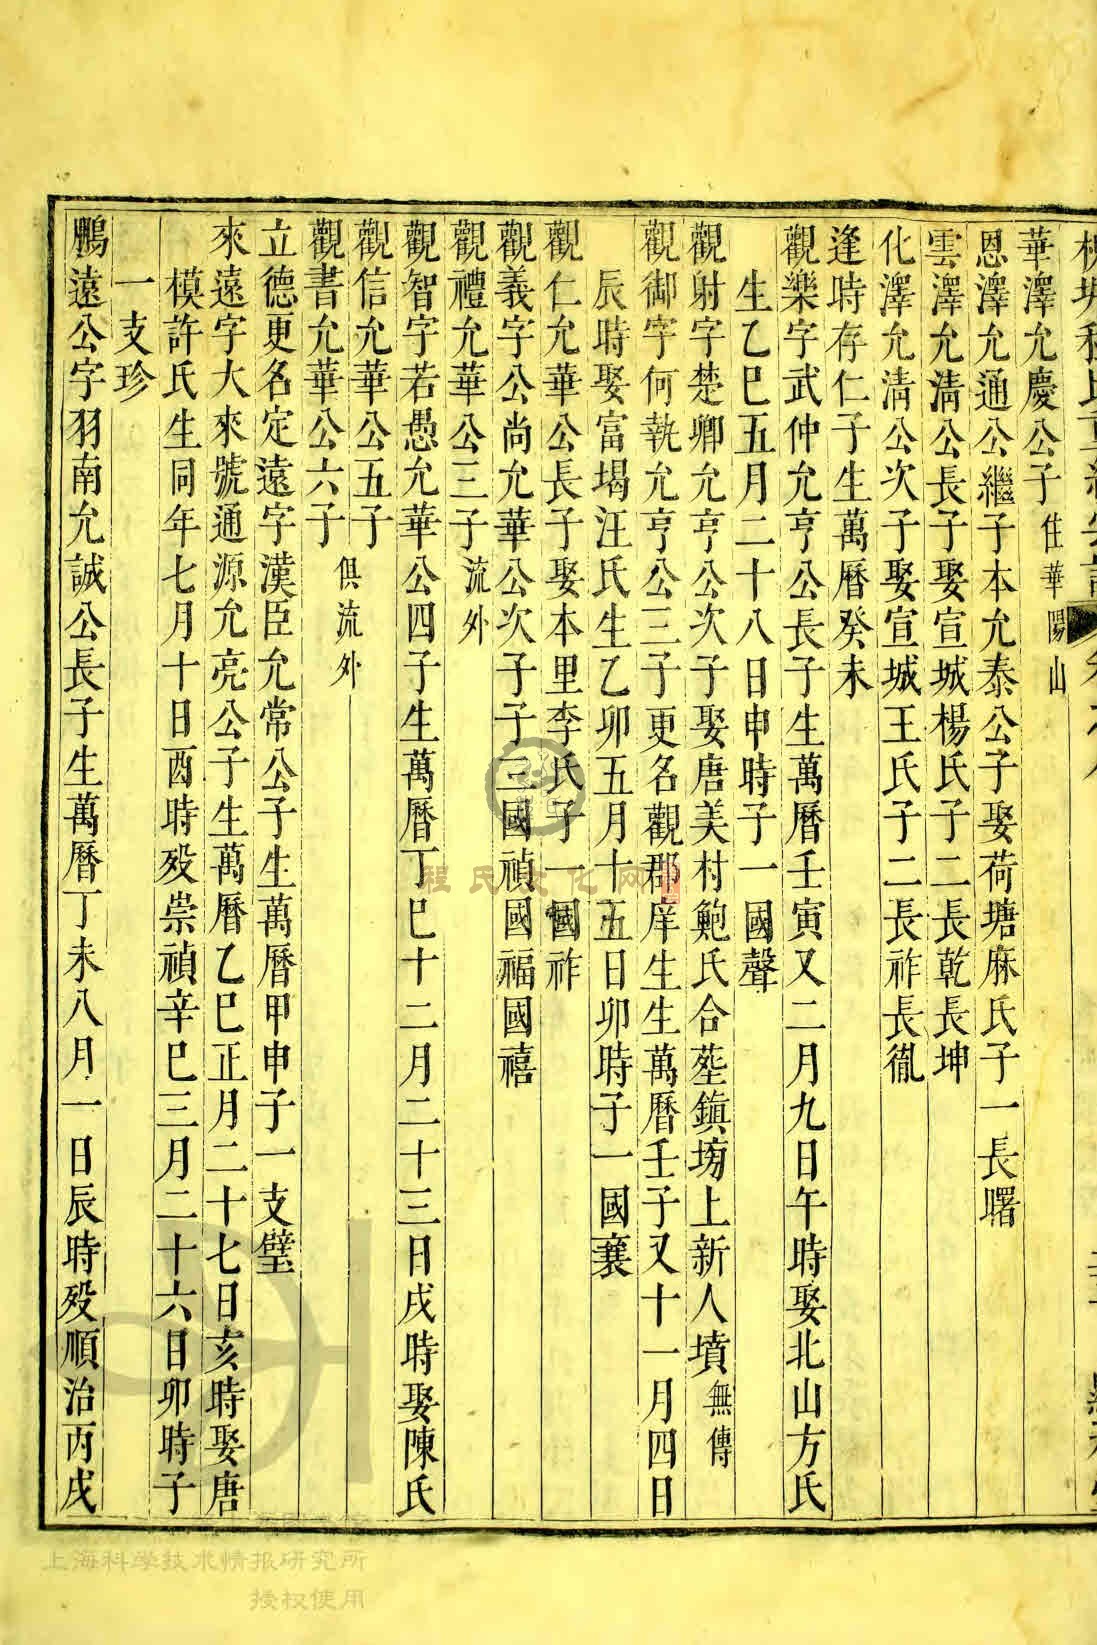 華澤允慶公子 住華陽山
恩澤允通公繼子本允泰公子娶荷塘麻氏子一長曙
雲澤允淸公長子娶宣城楊氏子二長乾長坤
化澤允淸公次子娶宣城王氏子二長祚長胤
逢時存仁子生萬曆癸未
觀樂字武仲允亨公長子生萬曆壬寅又二月九日午時娶北山方氏
生乙巳五月二十八日申時子一國聲
觀射字楚卿允亨公次子娶唐美村鮑氏合塟鎮塝上新人墳 無傳
觀御字何執允亨公三子更名觀郡庠生生萬曆壬子又十一月四日
辰時娶富堨汪氏生乙卯五月十五日卯時子一國襄
觀仁允華公長子娶本里李氏子一國祚
觀義字公尚允華公次子子三國禎國福國禧
觀禮允華公三子 流外
觀智字若愚允華公四子生萬曆丁巳十二月二十三日戌時娶陳氏
觀信允華公五子
觀書允華公六子 俱流外
立德更名定遠字漢臣允常公子生萬曆甲申子一支璧
來遠字大來號通源允亮公子生萬曆乙巳正月二十七日亥時娶唐
模許氏生同年七月十日酉時歿崇禎辛巳三月二十六日卯時子
一支珍
鵬遠公字羽南允誠公長子生萬曆丁未八月一日辰時歿順治丙戌
程氏文化网
上海科学技术情报研究所
授权使用